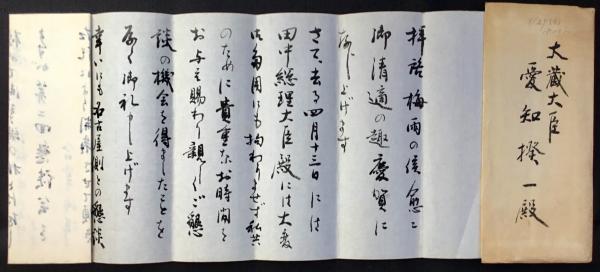 大蔵大臣
愛知揆一殿
拝啓 梅雨の候 愈々
御清適の趣慶賀に
存じ上げます
さて、去る四月十三日には
田中総理大臣殿には大変
御多用にも拘わりませず私共
のために貴重なお時間を
お与え賜わり親しくご懇
談の機会を得ましたことを
厚く御礼申し上げます
幸いにも名古屋側との懇談